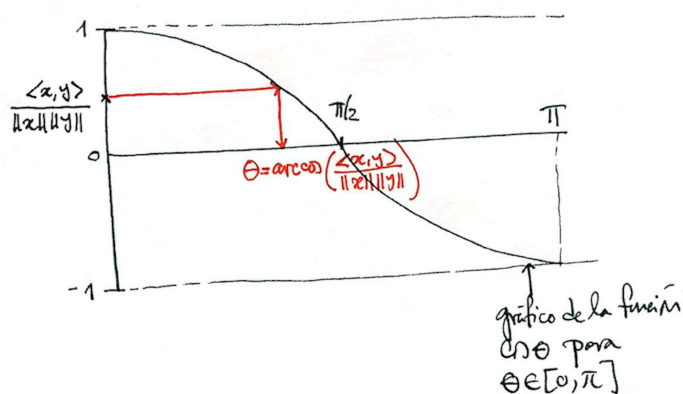 1
<x,y>
||x|| ||y||
π/2
π
0
θ = arccos(<x,y> / ||x|| ||y||)
-1
gráfico de la función
cos θ para
θ ∈ [0, π]